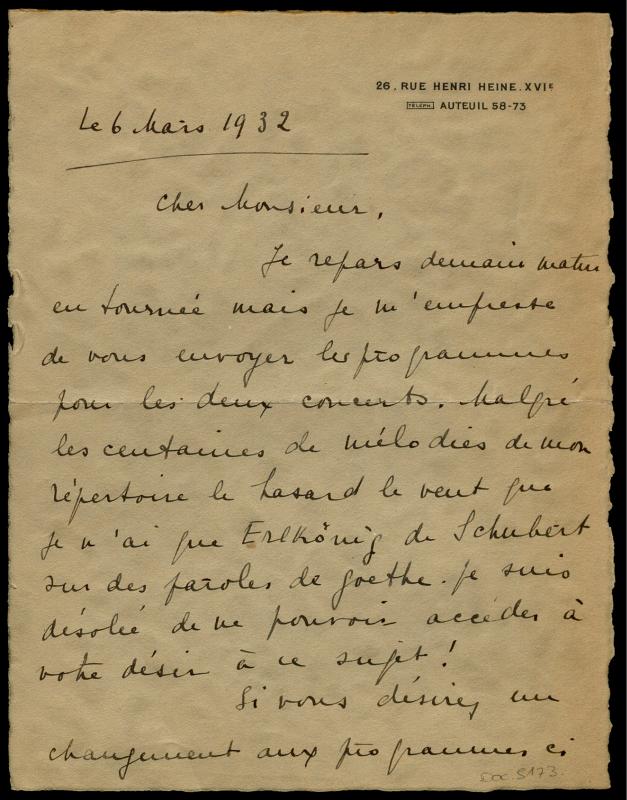 26, RUE HENRI HEINE. XVIE
TÉLÉPH. AUTEUIL 58-73
Le 6 Mars 1932
Cher Monsieur,
Je repars demain matin
en tournée mais je m'empresse
de vous envoyer les programmes
pour les deux concerts. Malgré
les centaines de mélodies de mon
répertoire le hasard le veut que
je n'ai que Erlkönig de Schubert
sur des paroles de goethe. Je suis
désolée de ne pouvoir accéder à
votre désir à ce sujet!
Si vous désirez un
changement aux programmes ci
Doc 5173.